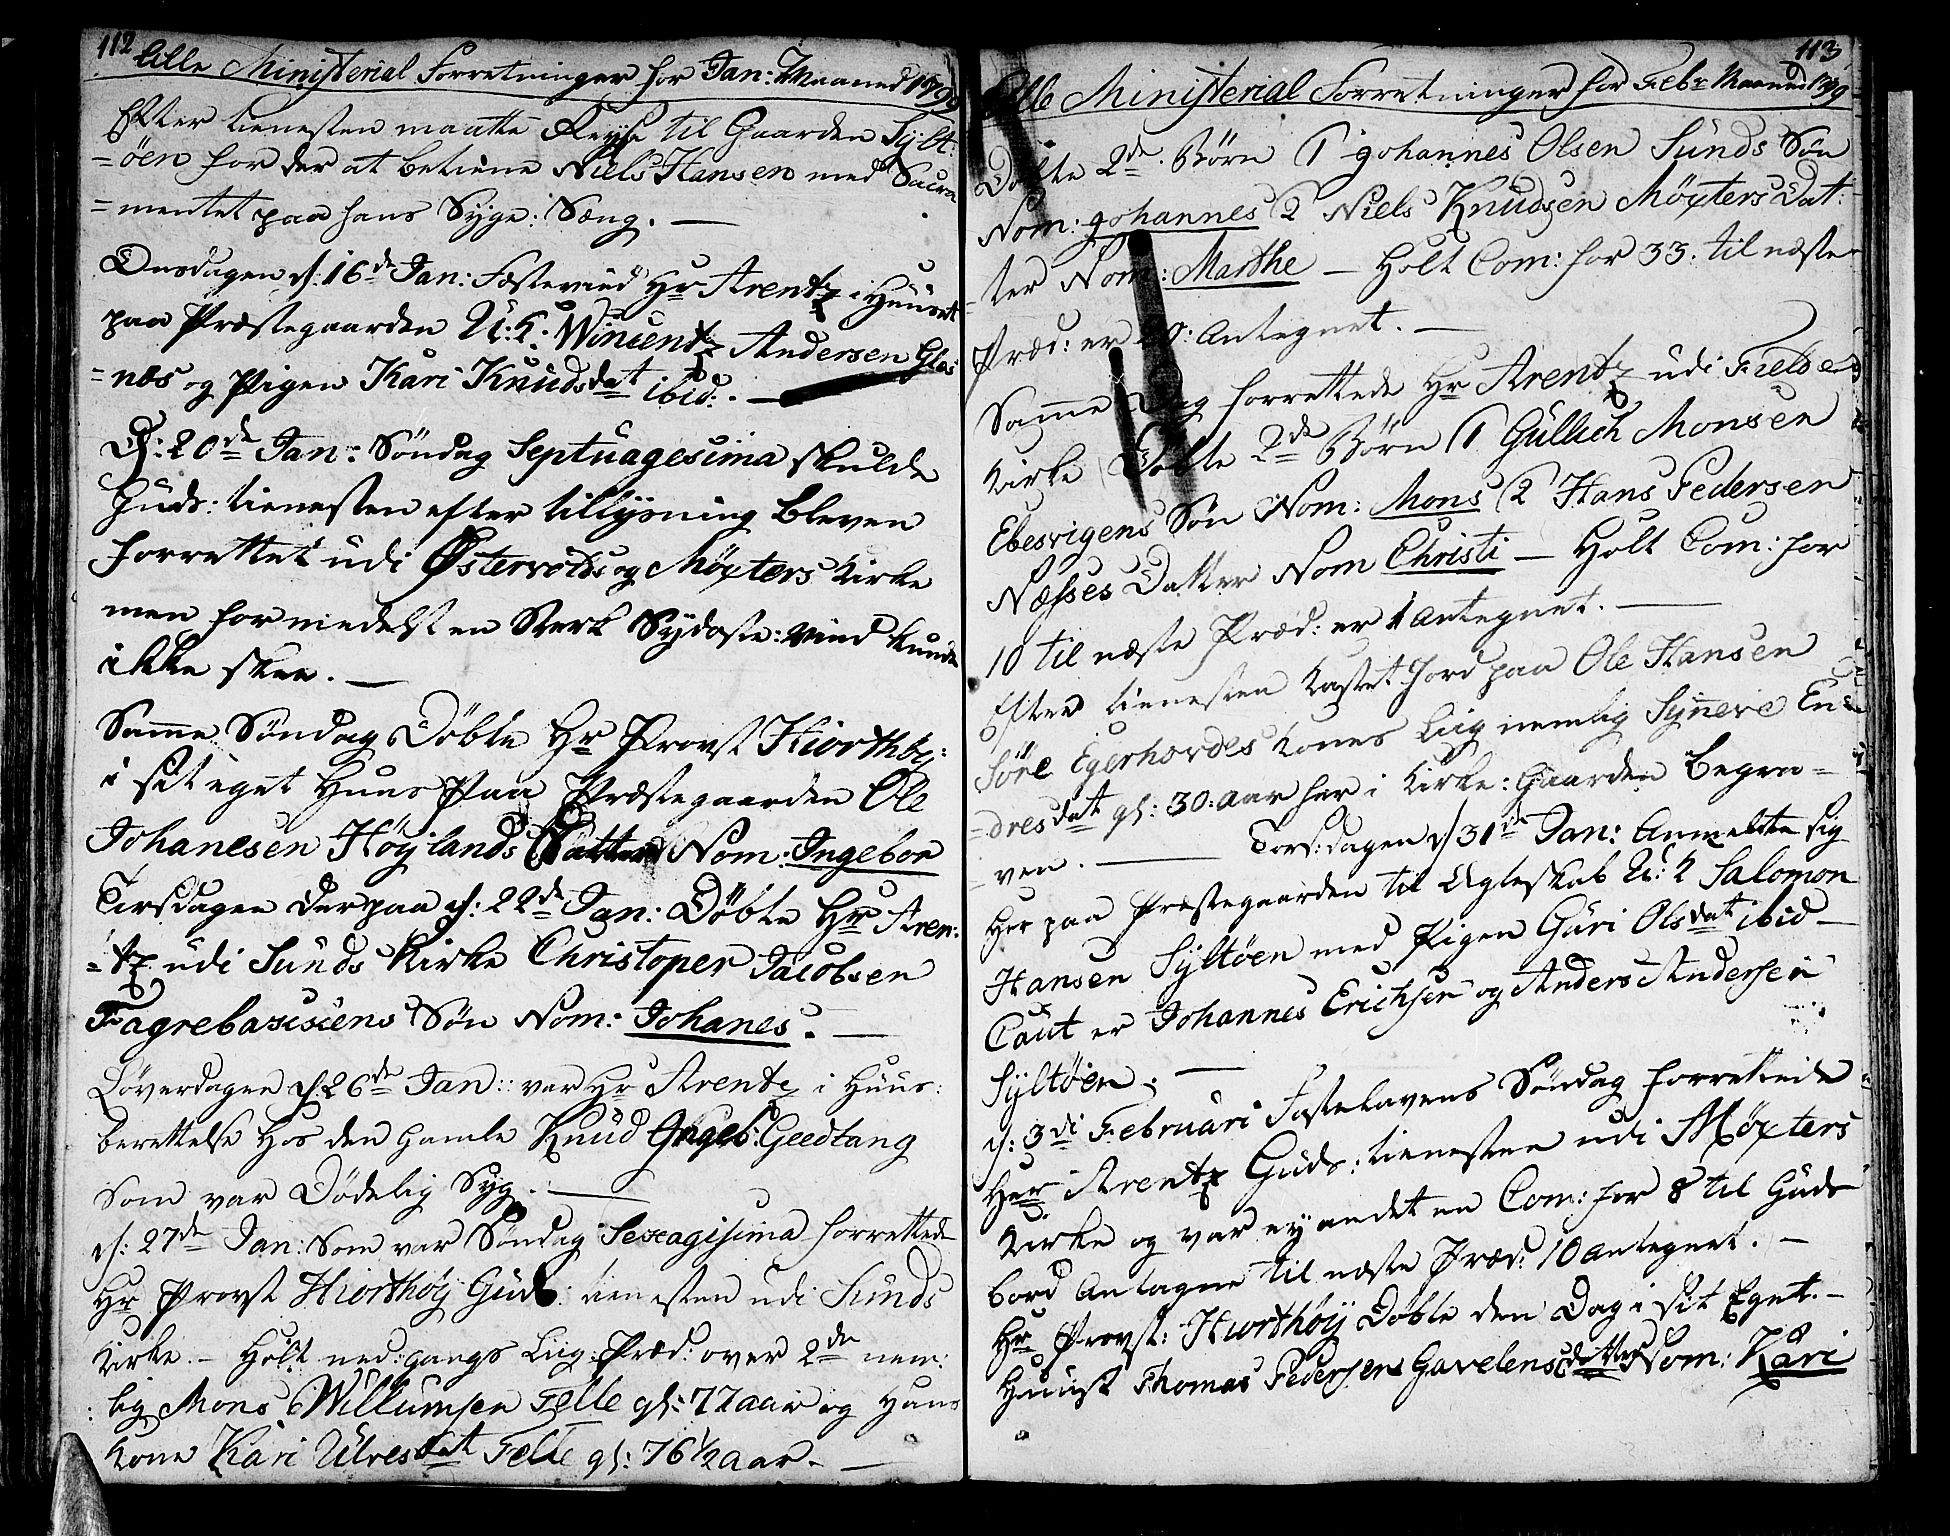 112 Alle Ministerial Forretninger for Jan: Maaned 1799
Efter tienesten maatte Reyse til Gaarden Sylt:
=öen for der at betiene Niels Hansen med Sacra
=mentet paa hans Syge: Seng. —
Onsdagen d: 16de Jan: Hr Arentz i Huuset
paa Præstegaarden U: K: Wincentz Andersen Glæs
=næs og Pigen Kari Knudsdat ibid: —
D: 20de Jan: Söndag Septuagesima skulde
Guds: tienesten efter tillysning bleven
forrettet udi Östervolds og Möxters Kirke
men formedelst en Sterk Sydoste: Vind kunde
ikke skee. —
Samme Söndag Döbte Hr Provst Hiorthöy:
i sit eget Huus paa Præstegaarden Ole
Johanesen Höylands Datter Nom: Ingebor
Tirsdagen derpaa d: 22de Jan: Döbte Hr Aren:
=tz udi Sunds Kirke Christoper Jacobsen
Sön Nom: Johanes. —
Löverdagen d: 26de Jan: var Hr Arentz i Huus:
berettelse hos den gamle Knud Ingeb: Geedtang
som var Dödelig Syg. —
d: 27de Jan: som var Söndag Sexagisima forrettede
Hr Provst Hiorthöy Guds: tienesten udi Sunds
Kirke. — Holt ned: gangs Liig: Præd: over 2de nem:
:lig Mons Willumsen Felle gl: 77 aar og Hans
Kone Kari Ulvesdat Felle gl: 76 1/2 aar. —
113
Alle Ministerial Forretninger for Febr Maaned 1799
Döbte 2de Börn 1 Johannes Olsen Sunds Sön
Nom: Johannes 2 Niels Knudsen Möxters Dat:
=ter Nom: Marthe — Holt Com: for 33. til næste
Præd: er 20: Antegnet. —
Samme Dag forrettede Hr Arentz udi Fielde
Kirke Döbte 2de Börn 1 Gullich Monsen
Ebesvigens Sön Nom: Mons 2 Hans Pedersen
Næsses Datter Nom Christi — Holt Com: for
10 til næste Præd: er 1 Antegnet. —
Efter tienesten kastet Jord paa Ole Hansen
Söre Egerhovdes Kones Liig nemlig Synneve En:
=dresdat gl: 30: Aar her i Kirke: Gaarden begra=
ven. — Torsdagen d 31de Jan: Anmeldte sig
her paa Præstegaarden til Ægteskab U: K Salomon
Hansen Syltöen med Pigen Guri Olsdat ibid —
Caut er Johannes Erichsen og Anders Andersen
Syltöen. —
d: 3di Februari Fastelavens Söndag forrettede
Her Arentz Guds: tienesten udi Möxters
Kirke og var ey andet en Com: for 8 til Guds
bord Antagne til næste Præd: 10 antegnet. —
Hr Provst: Hiorthöy Döbte den Dag i sit Eget. —
Huus Thomas Pedersens Gavelens datter Nom: Kari